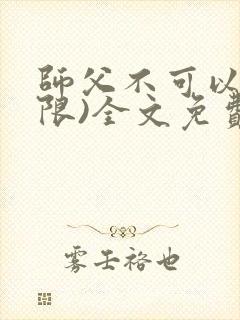 師父不可以
限)全文免費
雾壬袼也